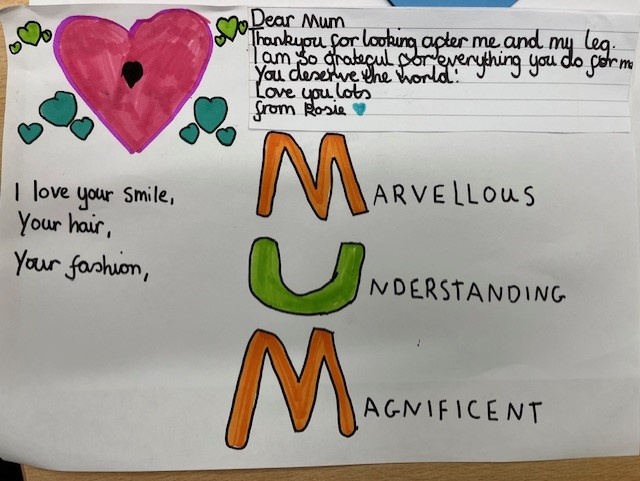 Dear Mum
Thankyou for looking after me and my leg.
I am so grateful for everything you do for me
You deserve the world!
Love you lots
from Rosie
I love your smile,
Your hair,
Your fashion,
MARVELLOUS
UNDERSTANDING
MAGNIFICENT